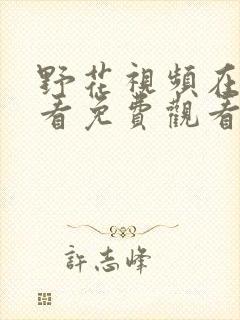 野花視頻在
看免費觀看
許志峰